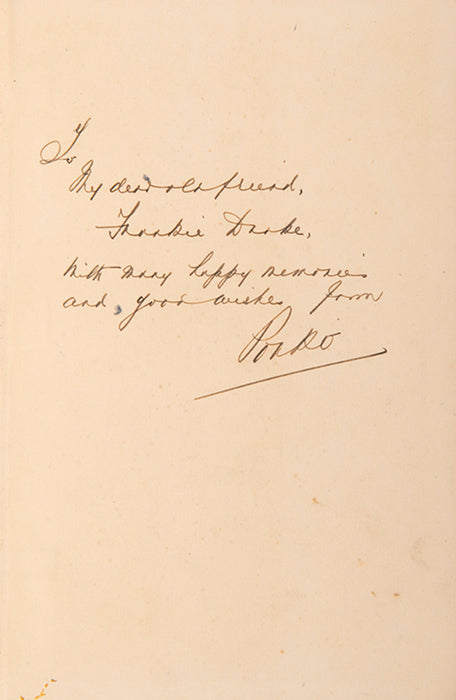 To
My dear old friend,
Frankie Drake,
With many happy memories
and good wishes from
Ponko